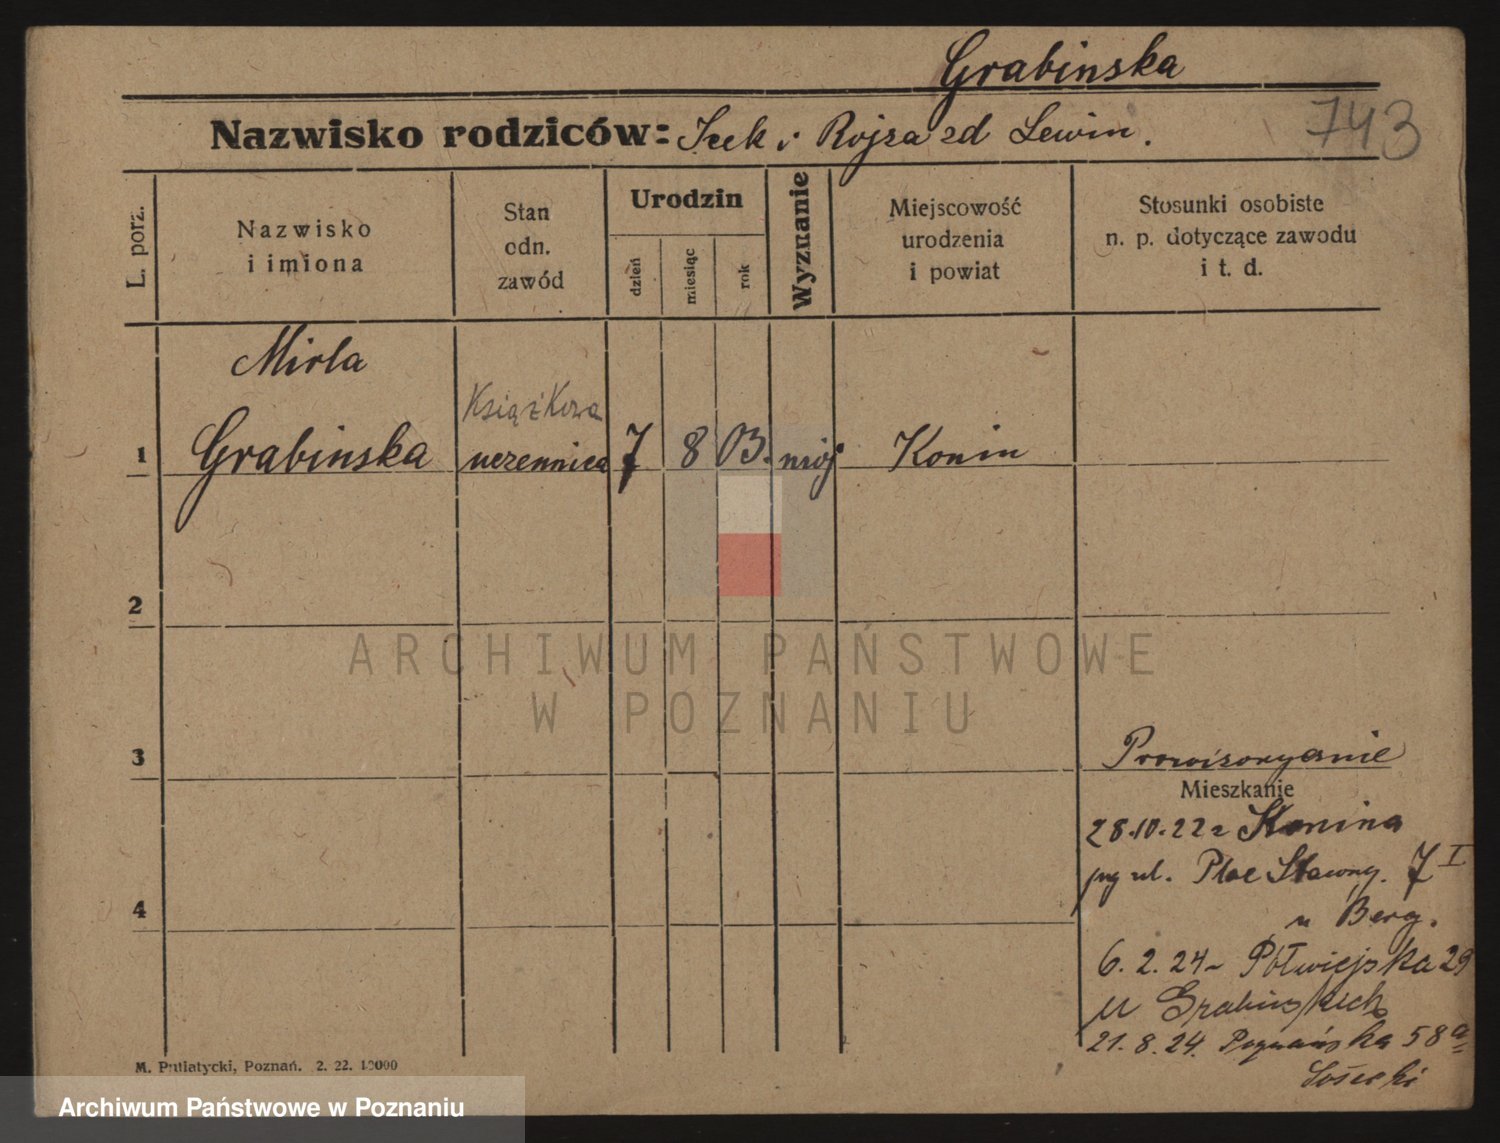 Grabinska
Nazwisko rodziców: Icek i Rojza zd Lewin.
743
L. porz.
Nazwisko
i imiona
Stan
odn.
zawód
Urodzin
dzień
miesiąc
rok
Wyznanie
Miejscowość
urodzenia
i powiat
Stosunki osobiste
n. p. dotyczące zawodu
i t. d.
Mirla
Książkowa
1 Grabinska uczennica 7 8 03. mojż Konin
2
ARCHIWUM PAŃSTWOWE
W POZNANIU
3
Prowizorycznie
Mieszkanie
28.10.22 z Konina
ul. Plac Stawny. 7 I
u Berg.
4
6.2.24 Półwiejska 29
u Grabinskich
21.8.24. Poznańska 58a
M. Putiatycki, Poznań. 2. 22. 10000
Archiwum Państwowe w Poznaniu